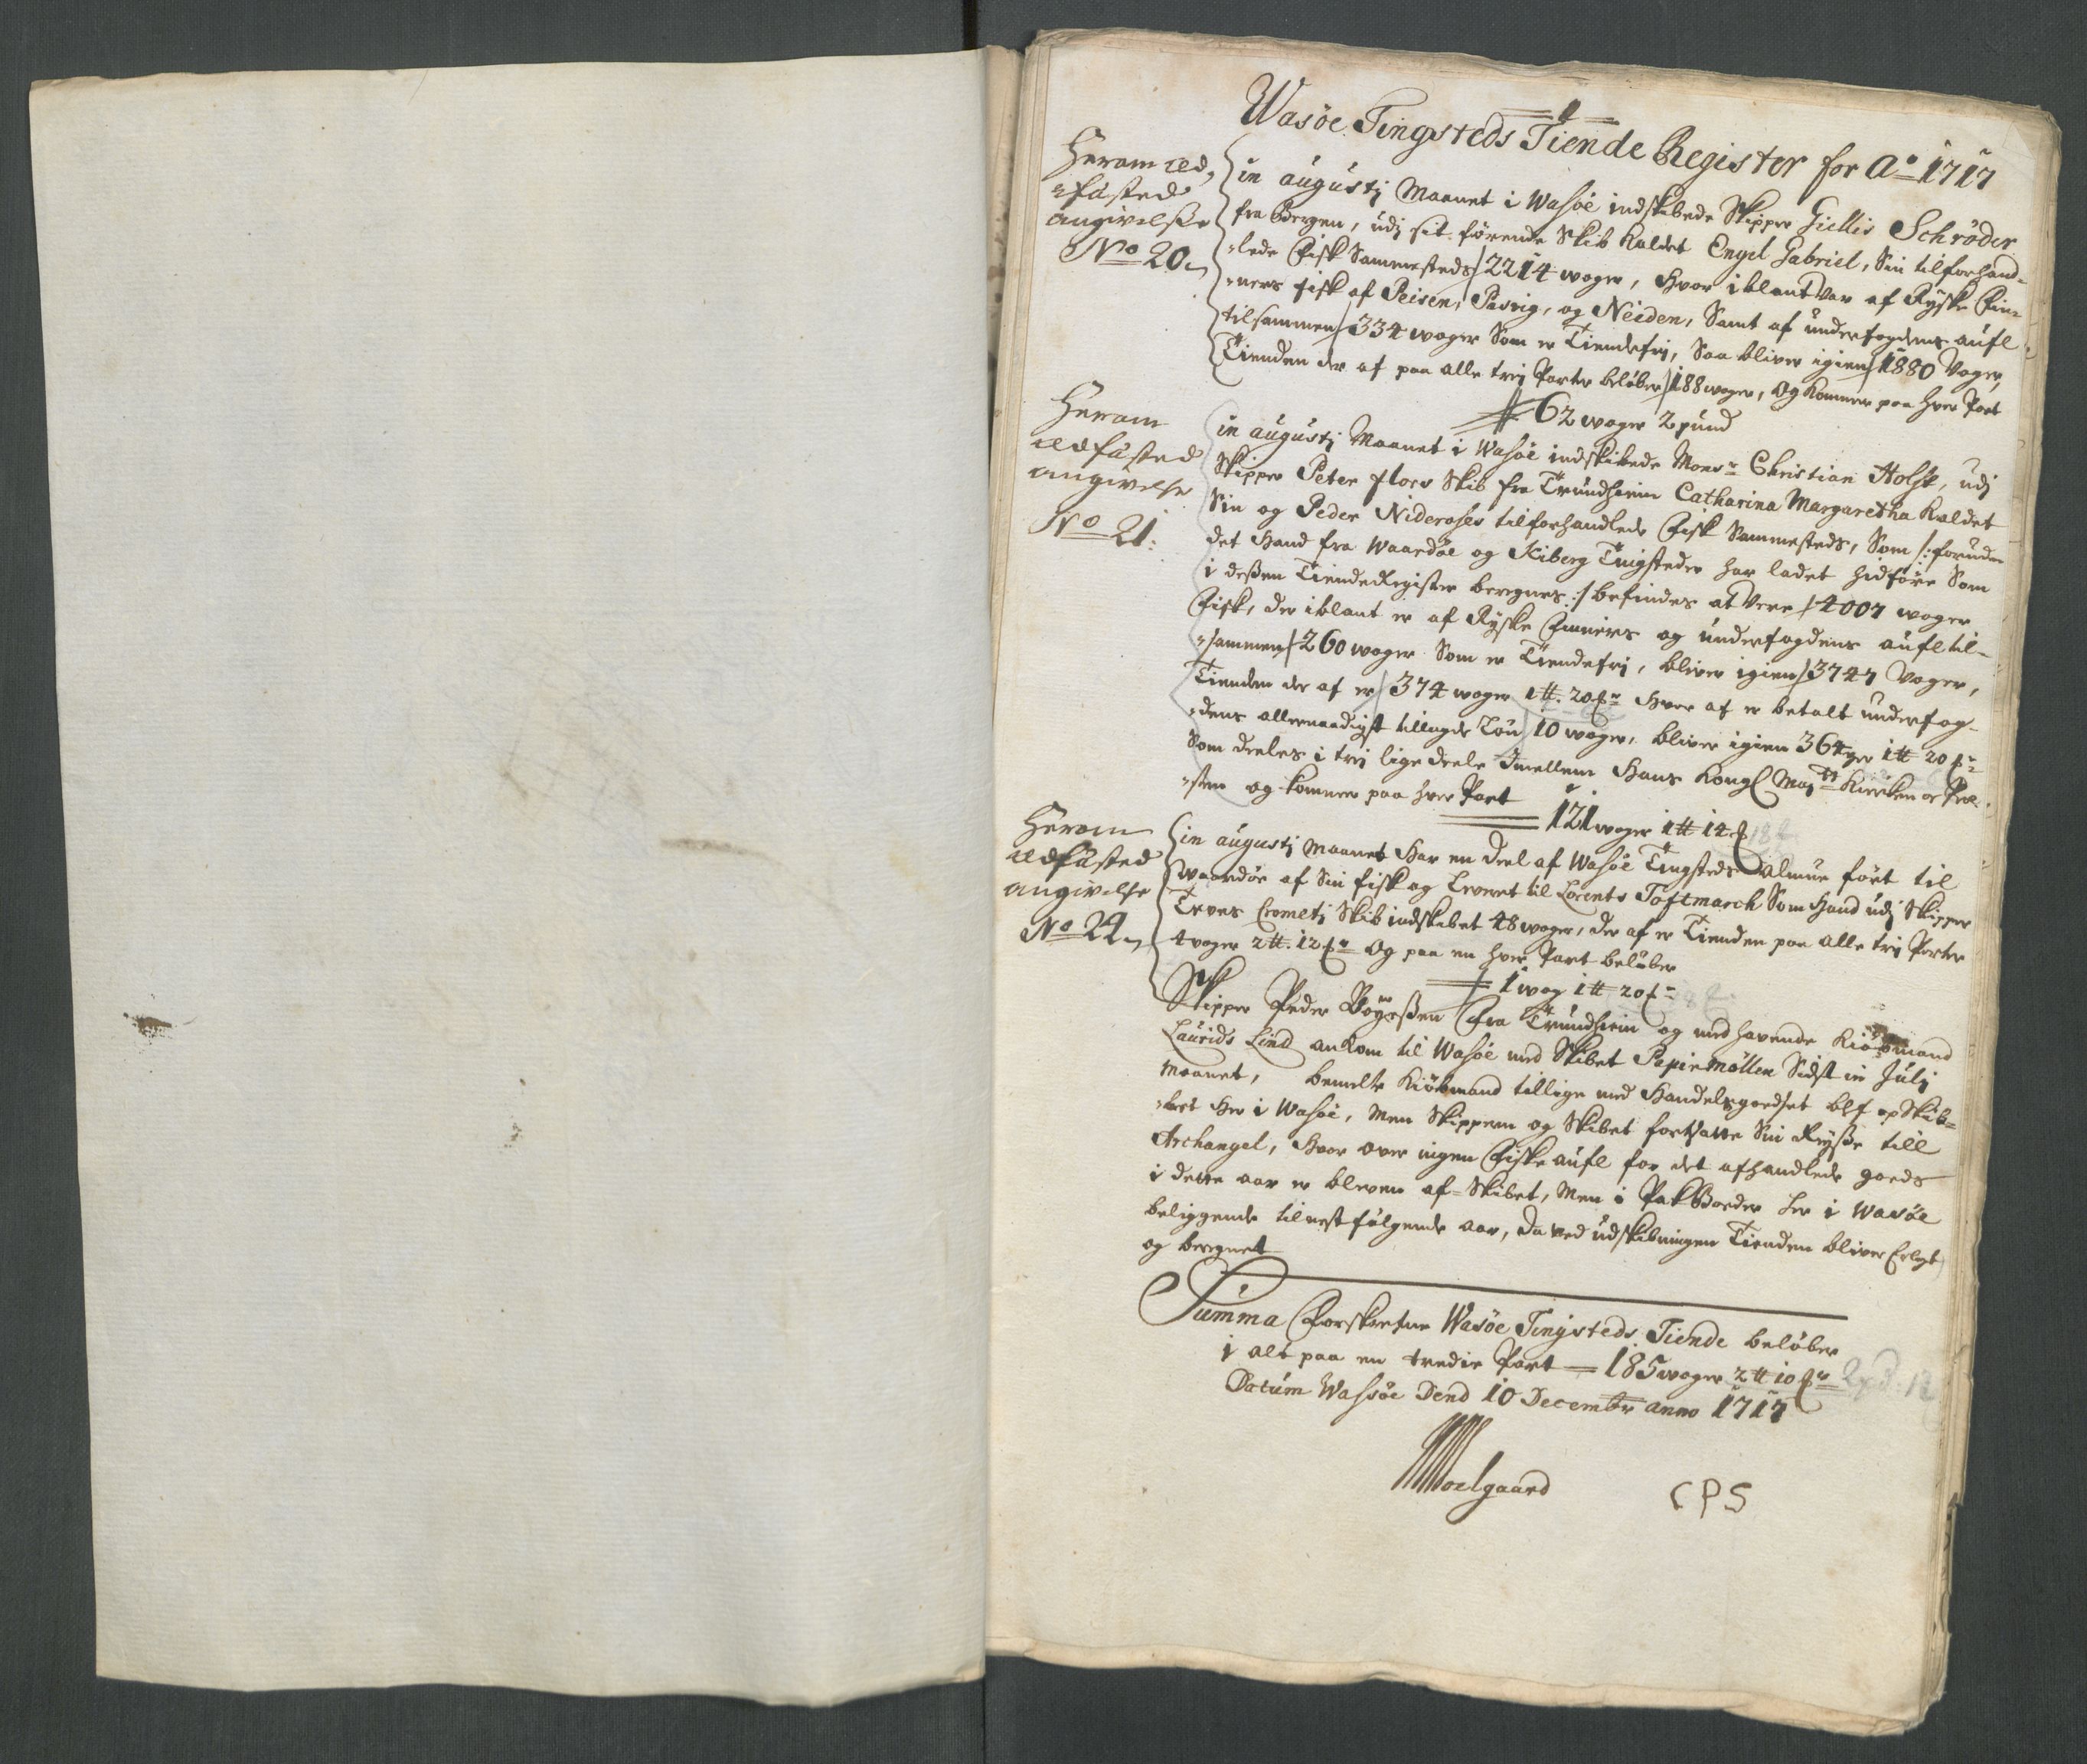 1
Wasöe Tingsteds Tiende Register for Ao 1717
Herom Ud¸
¸fästed
angivelsse
No 20
in augustj Maanet i Wasöe indskibede Skipper Giellis Schröder
fra Bergen, udj sit förende Skib kaldet Engel Gabriel, Sin tilforhand¸
¸lede Fisk Sammesteds 2214 woger, Hvor iblant var af Ryske Fin¸
¸ners fisk af Peisen, Pasvig, og Neiden, Samt af underfogdens aufl
tilsammen 334 woger Som er Tiendefrj, Saa bliver igien 1880 Voger,
Tienden der af paa alle trej Parter belöber 188 woger, Og kommer paa hver Part
62 woger 2 pund
Herom
Udfästed
angivelse
No 21.
in augustj Maanet i Wasöe indskibede Monsr Christian Holst, udj
Skipper Peter floer Skib fra Trundheim Catharina Margaretha kaldet
Sin og Peder Nideroses tilforhandlede Fisk Sammesteds, Som /: foruden
det Hand fra Waardöe og Kiberg Tingsteder har ladet hidföre Som
i dessen Tiende Register beregnes :/ befindes at Vere 4007 woger
Fisk, der iblant er af Ryske Finners og underfogdens aufl til¸
¸sammen 260 woger Som er Tiendefrj, bliver igien 3747 Voger,
Tienden der af er 374 woger 1 ℔. 20 ... Hvor af er betalt underfog¸
¸dens allernaadigst tillagde Lön 10 woger, bliver igien 364 ... 1 ℔ 20 ...
Som deeles i trej lige deele Imellem Hans Kongl Majts Kircken og Præ¸
¸sten og kommer paa hver Part
121 woger 1 ℔ 14 ...
Herom
Udfästed
angivelse
No 22
in augustj Maanet Har en deel af Wasöe Tingsteds Almue fört til
Waardöe af Sin fisk og Leveret til Lorents Toftmarch Som Hand udj Skipper
... Cometj Skib indskibet 48 woger, der af er Tienden paa alle trej Parter
4 voger 2 ℔. 12 ... Og paa en hver Part belöber
1 wog 1 ℔ 20 ...
Skipper Peder Böyessen Fra Trundheim og medhavende Kiöbmand
Laurids Lind ankom til Wasöe med Skibet Papiermöllen Sidst in Julj
Maanet, bemelte Kiöbmand tillige med Handelsgodset blef opskib¸
¸bet Her i Wasöe, Men Skipperen og Skibet fortsatte Sin Reysse till
Archangel, Hvor over ingen Fiske aufl for det afhandlede goeds
i dette aar er bleven af-Skibet, Men i Pakboeder her i Wasöe
beliggende til nestfölgende aar, da ved udskibningen Tienden bliver Erlagt
og beregnet
Summa Forskrefne Wasöe Tingsteds Tiende belöber
i alt paa en tredie Part 185 woger 2 ℔ 10 ...
Datum Wasöe Dend 10 Decembr anno 1717
Moelgaard
CPS